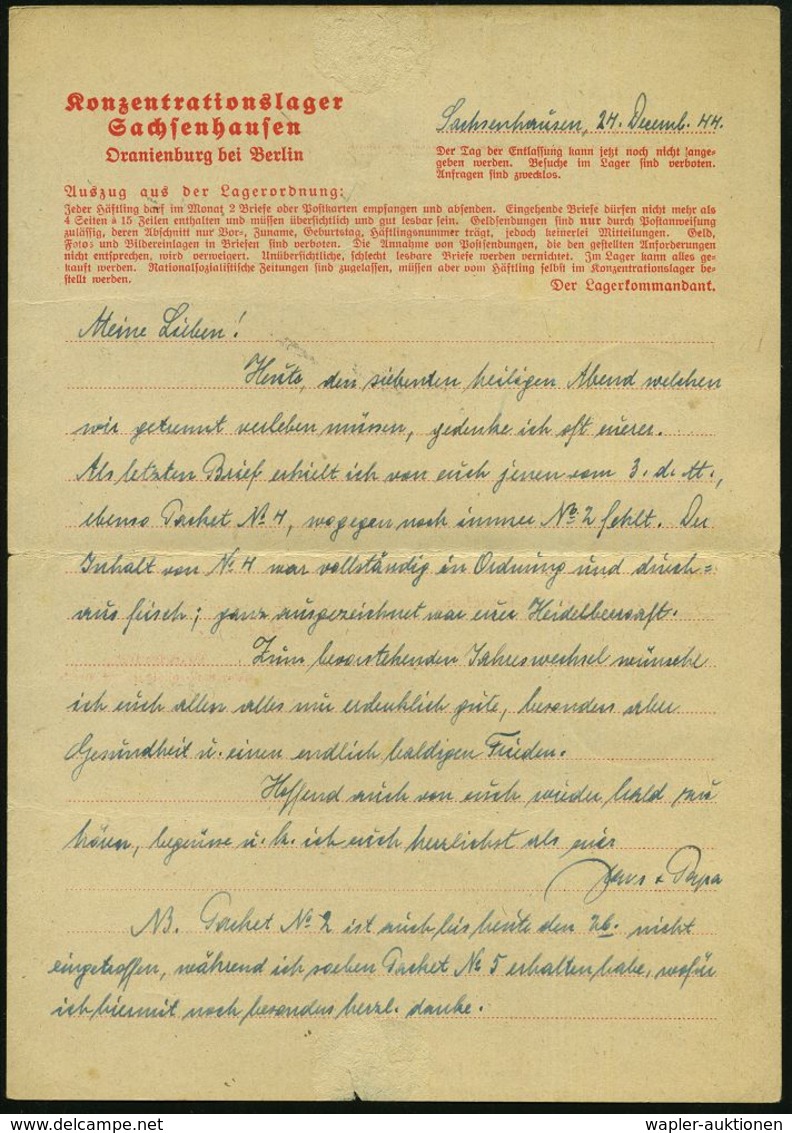 Konzentrationslager
Sachsenhausen
Oranienburg bei Berlin
Sachsenhausen, 24. Decemb. 44.
Der Tag der Entlassung kann jetzt noch nicht ange-
geben werden. Besuche im Lager sind verboten.
Anfragen sind zwecklos.
Auszug aus der Lagerordnung:
Jeder Häftling darf im Monat 2 Briefe oder Postkarten empfangen und absenden. Eingehende Briefe dürfen nicht mehr als
4 Seiten à 15 Zeilen enthalten und müssen übersichtlich und gut lesbar sein. Geldsendungen sind nur durch Postanweisung
zulässig, deren Abschnitt nur Vor-, Zuname, Geburtstag, Häftlingsnummer trägt, jedoch keinerlei Mitteilungen. Geld,
Fotos und Bildereinlagen in Briefen sind verboten. Die Annahme von Postsendungen, die den gestellten Anforderungen
nicht entsprechen, wird verweigert. Unübersichtliche, schlecht lesbare Briefe werden vernichtet. Im Lager kann alles ge-
kauft werden. Nationalsozialistische Zeitungen sind zugelassen, müssen aber vom Häftling selbst im Konzentrationslager be-
stellt werden.
Der Lagerkommandant.
Meine Lieben!
Heute, den siebenten heiligen Abend welchen
wir getrennt verleben müssen, gedenke ich oft eurer.
Als letzten Brief erhielt ich von euch jenen vom 3. d. M.,
ebenso Packet № 4, wogegen noch immer № 2 fehlt. Der
Inhalt von № 4 war vollständig in Ordnung und durch=
aus frisch; ganz ausgezeichnet war euer Heidelbeersaft.
Zum bevorstehenden Jahreswechsel wünsche
ich euch allen alles nur erdenklich gute, besonders aber
Gesundheit u. einen endlich baldigen Frieden.
Hoffend auch von euch wieder bald zu
hören, begrüsse u. k. ich euch herzlichst als euer
+ Papa
NB. Packet № 2 ist auch bis heute den 26. nicht
eingetroffen, während ich soeben Packet № 5 erhalten habe, wofür
ich hiermit noch besonders herzl. danke.
wapler-auktionen